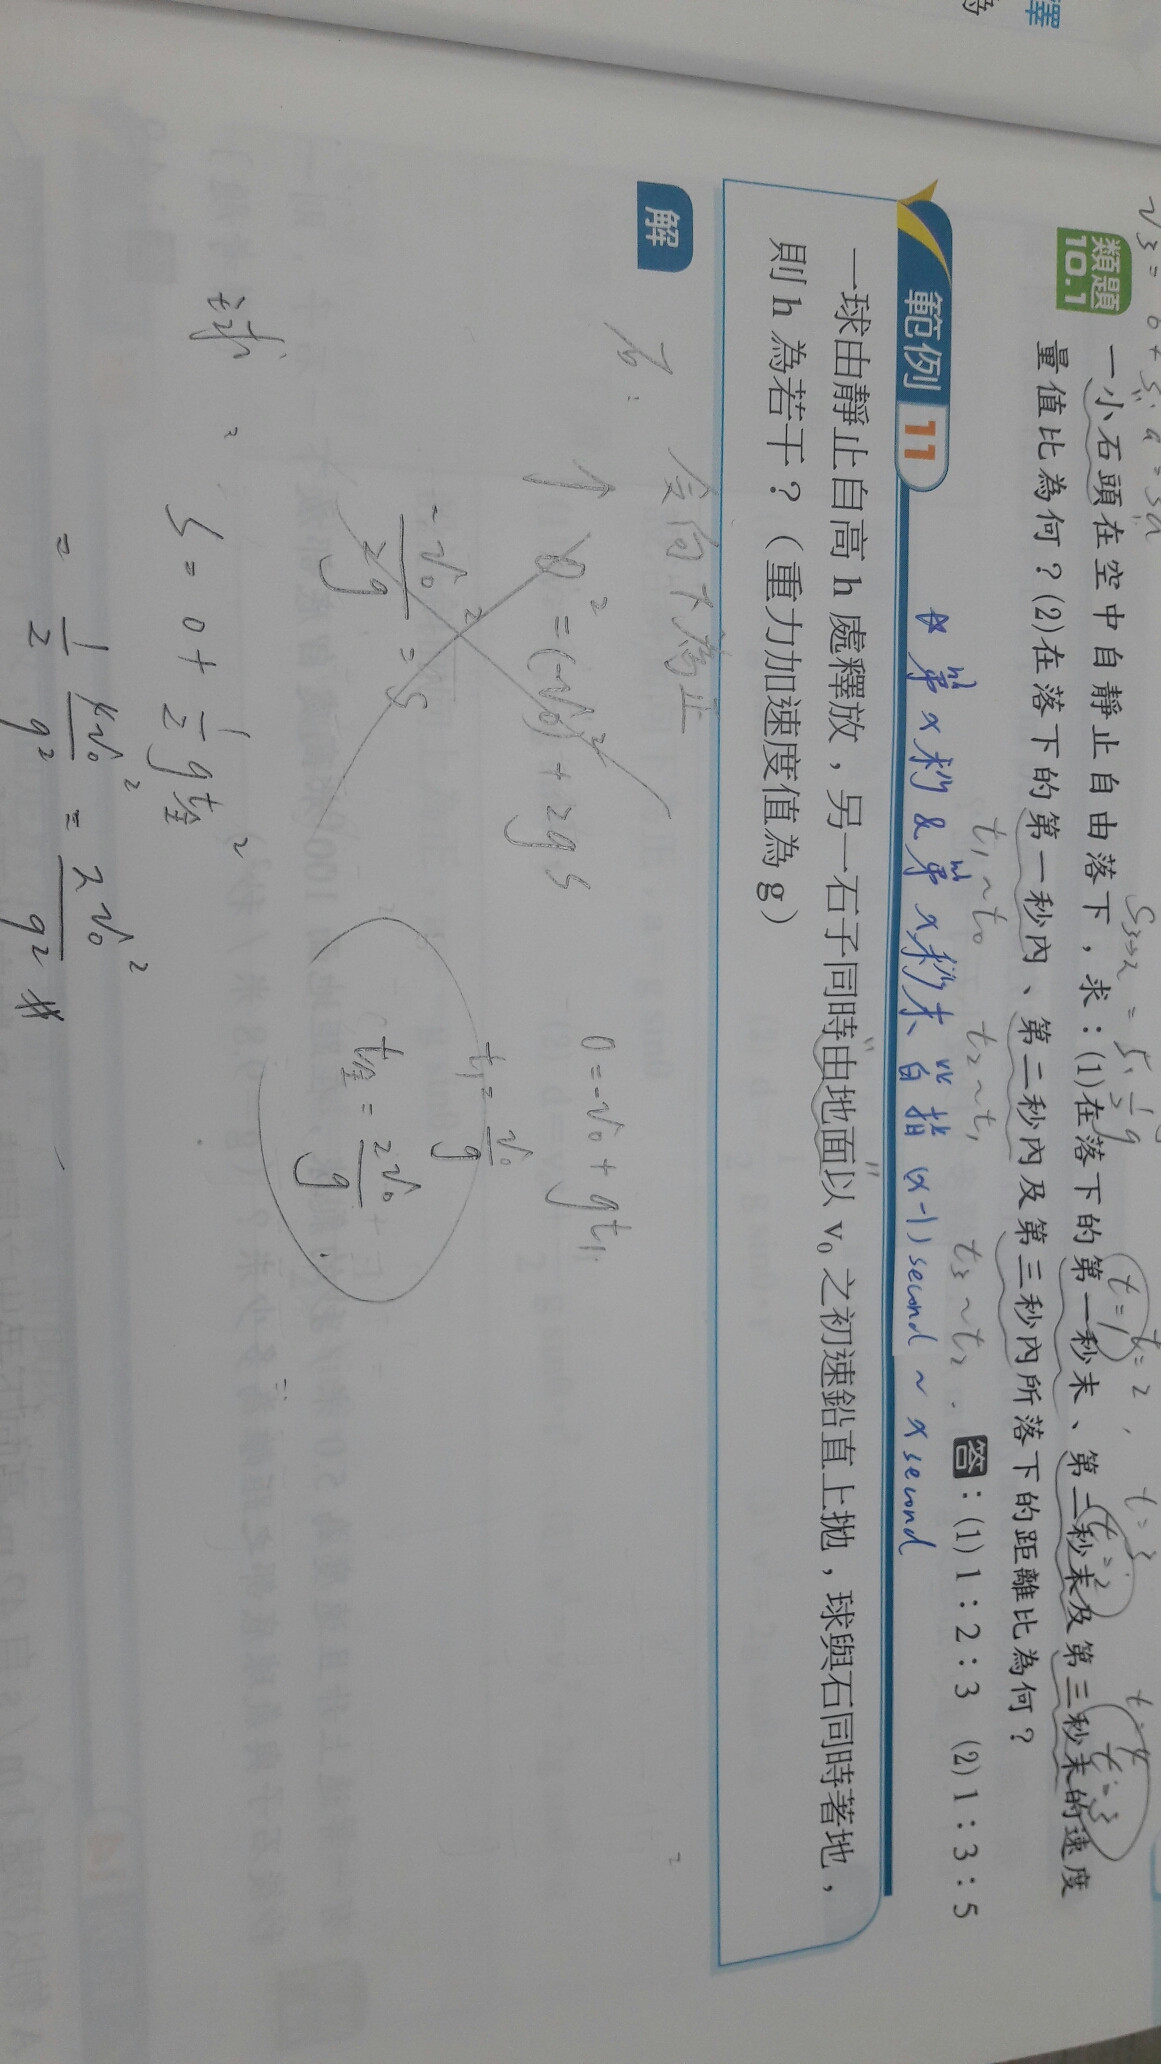 擇
為
v₃ = 0 + 3·a = 3a
t=2, t=3
類題 10.1 一小石頭在空中自靜止自由落下，求：(1)在落下的第一秒末、第二秒末及第三秒末的速度
t=1 t=2 t=3
量值比為何？(2)在落下的第一秒內、第二秒內及第三秒內所落下的距離比為何？
t₁~t₀ t₂~t₁ t₃~t₂
答：(1) 1：2：3 (2) 1：3：5
第x秒 & 第x秒末 指 (x-1) second ~ x second
範例 11
一球由靜止自高 h 處釋放，另一石子同時由地面以 v₀ 之初速鉛直上拋，球與石同時著地，
則 h 為若干？（重力加速度值為 g）
解
石：
令向下為正
↑ 0² = (-v₀)² + 2gs
-v₀²/2g = s
0 = -v₀ + gt₁
t₁ = v₀/g
t全 = 2v₀/g
球：
S = 0 + 1/2 g t全²
= 1/2 4v₀²/g² = 2v₀²/g² #